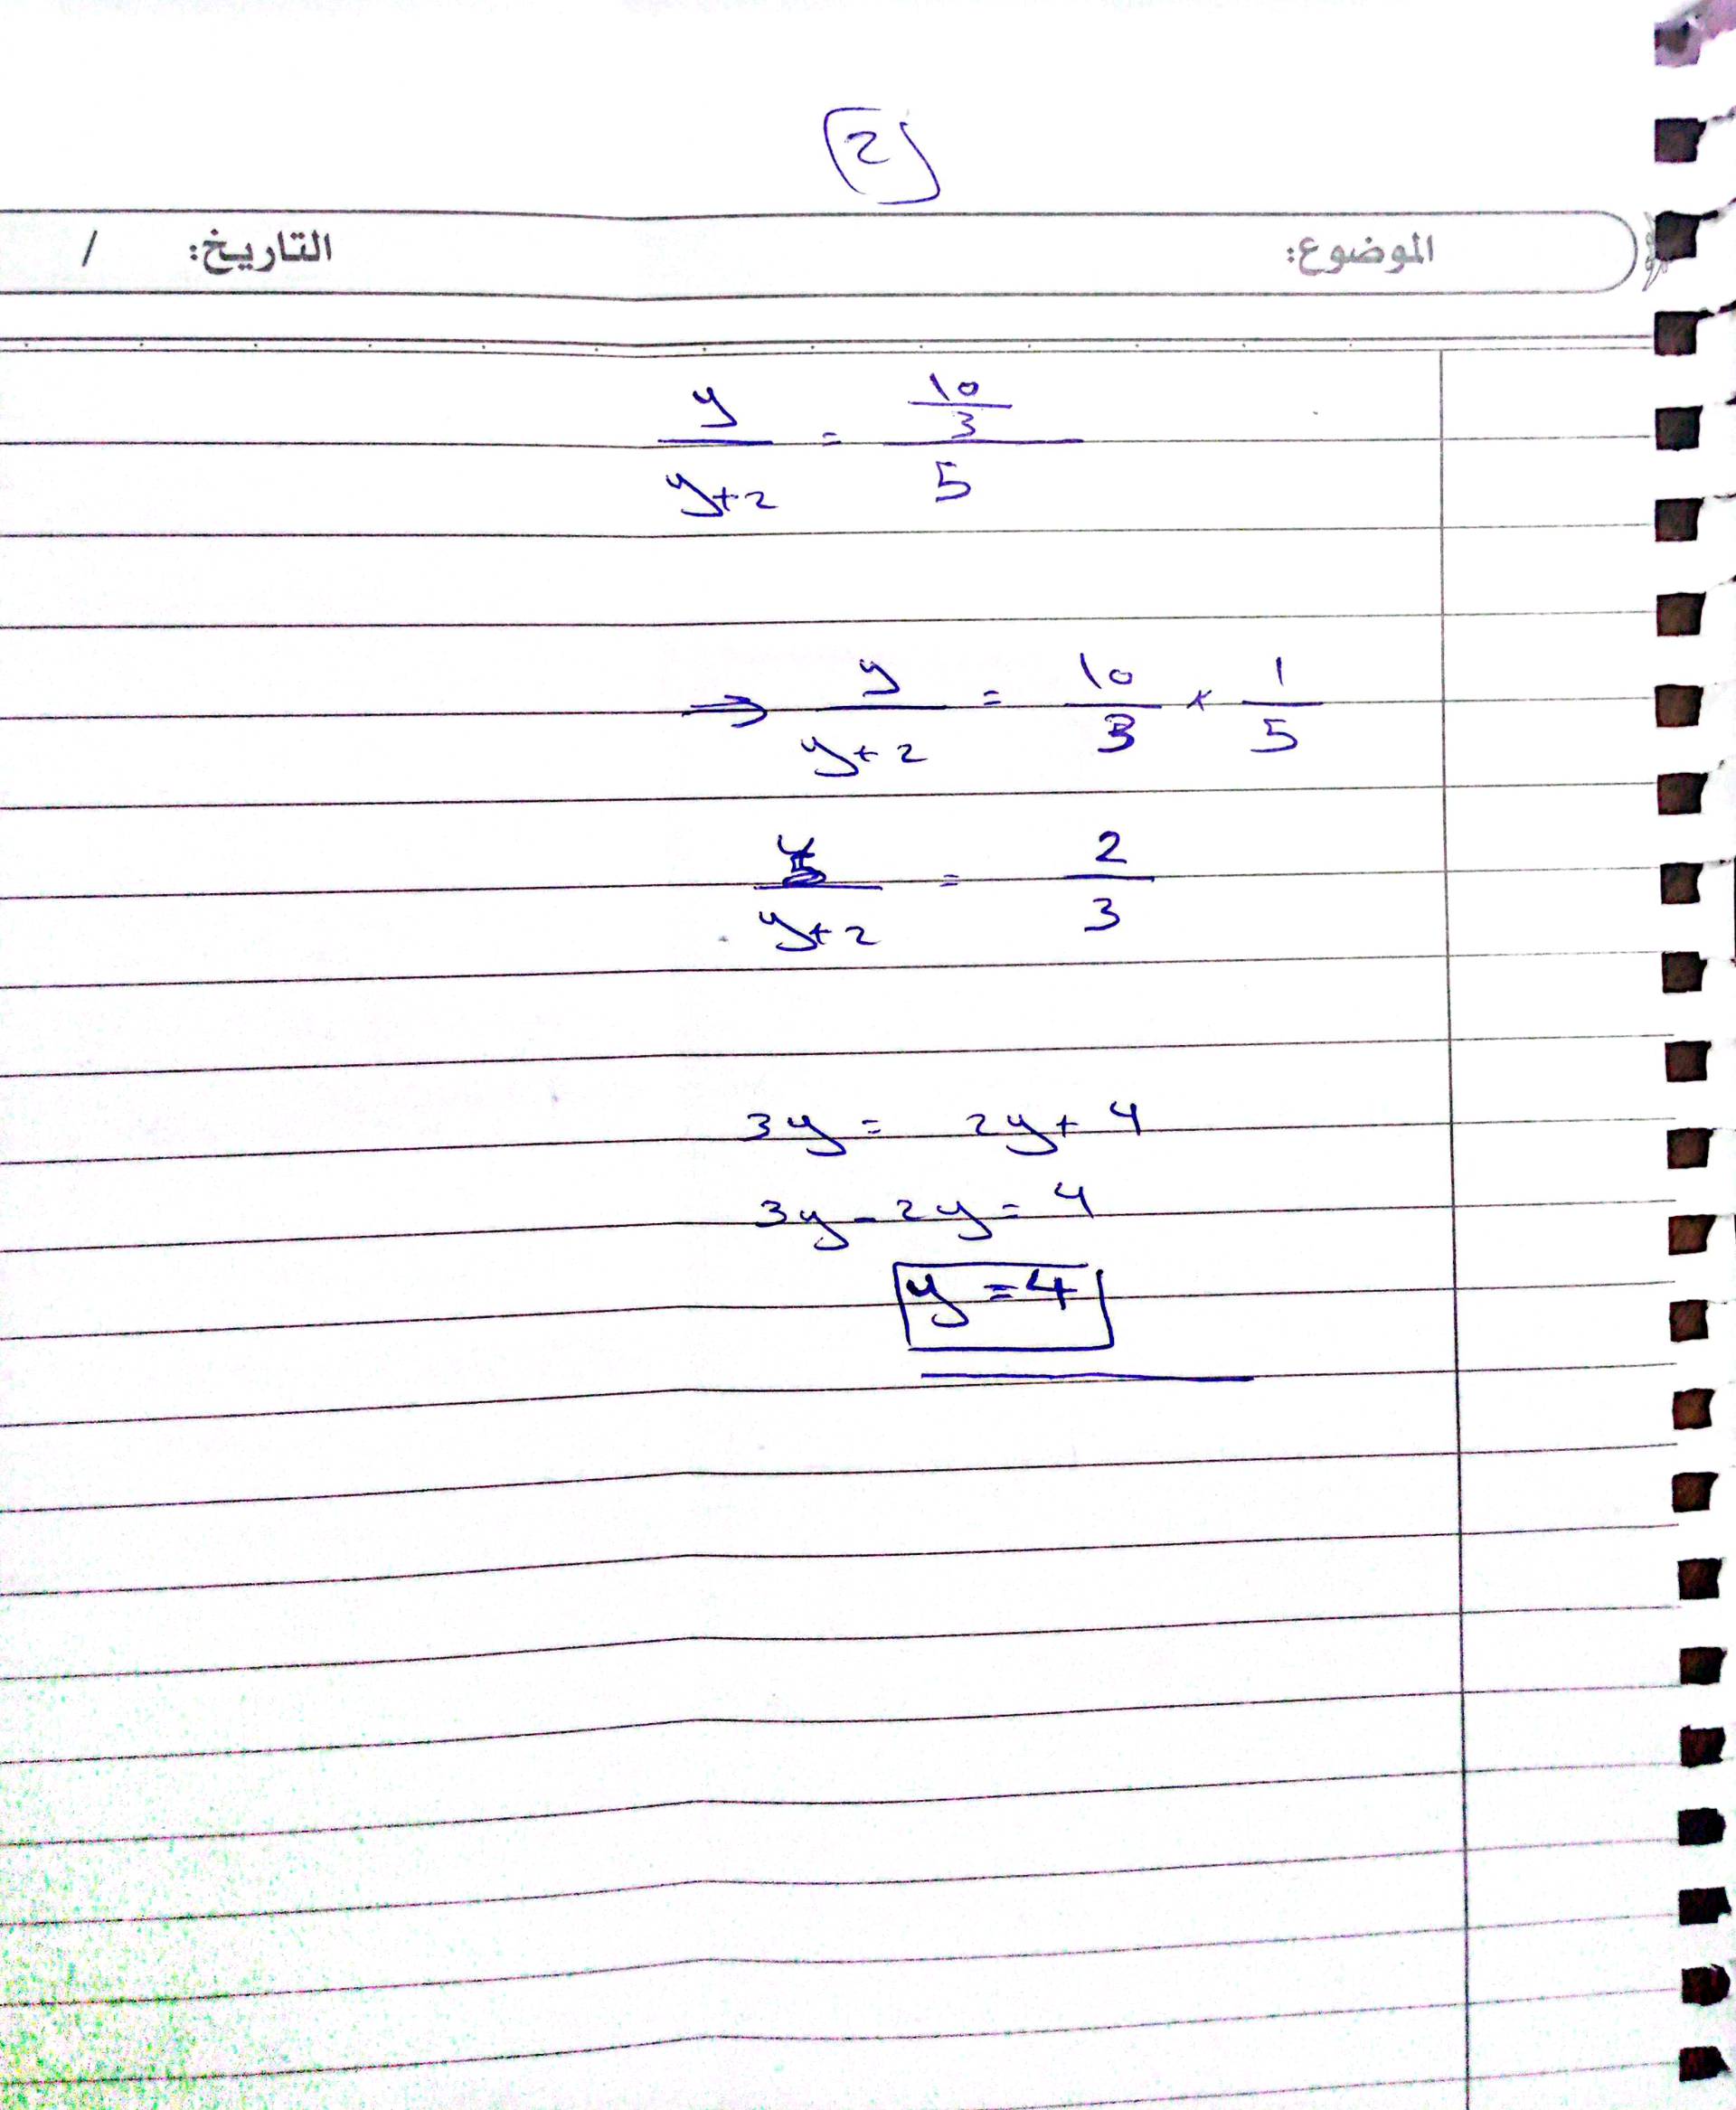 2
الموضوع: التاريخ: /
y/(y+2) = (10/3)/5
⇒ y/(y+2) = 10/3 × 1/5
y/(y+2) = 2/3
3y = 2y + 4
3y - 2y = 4
y = 4